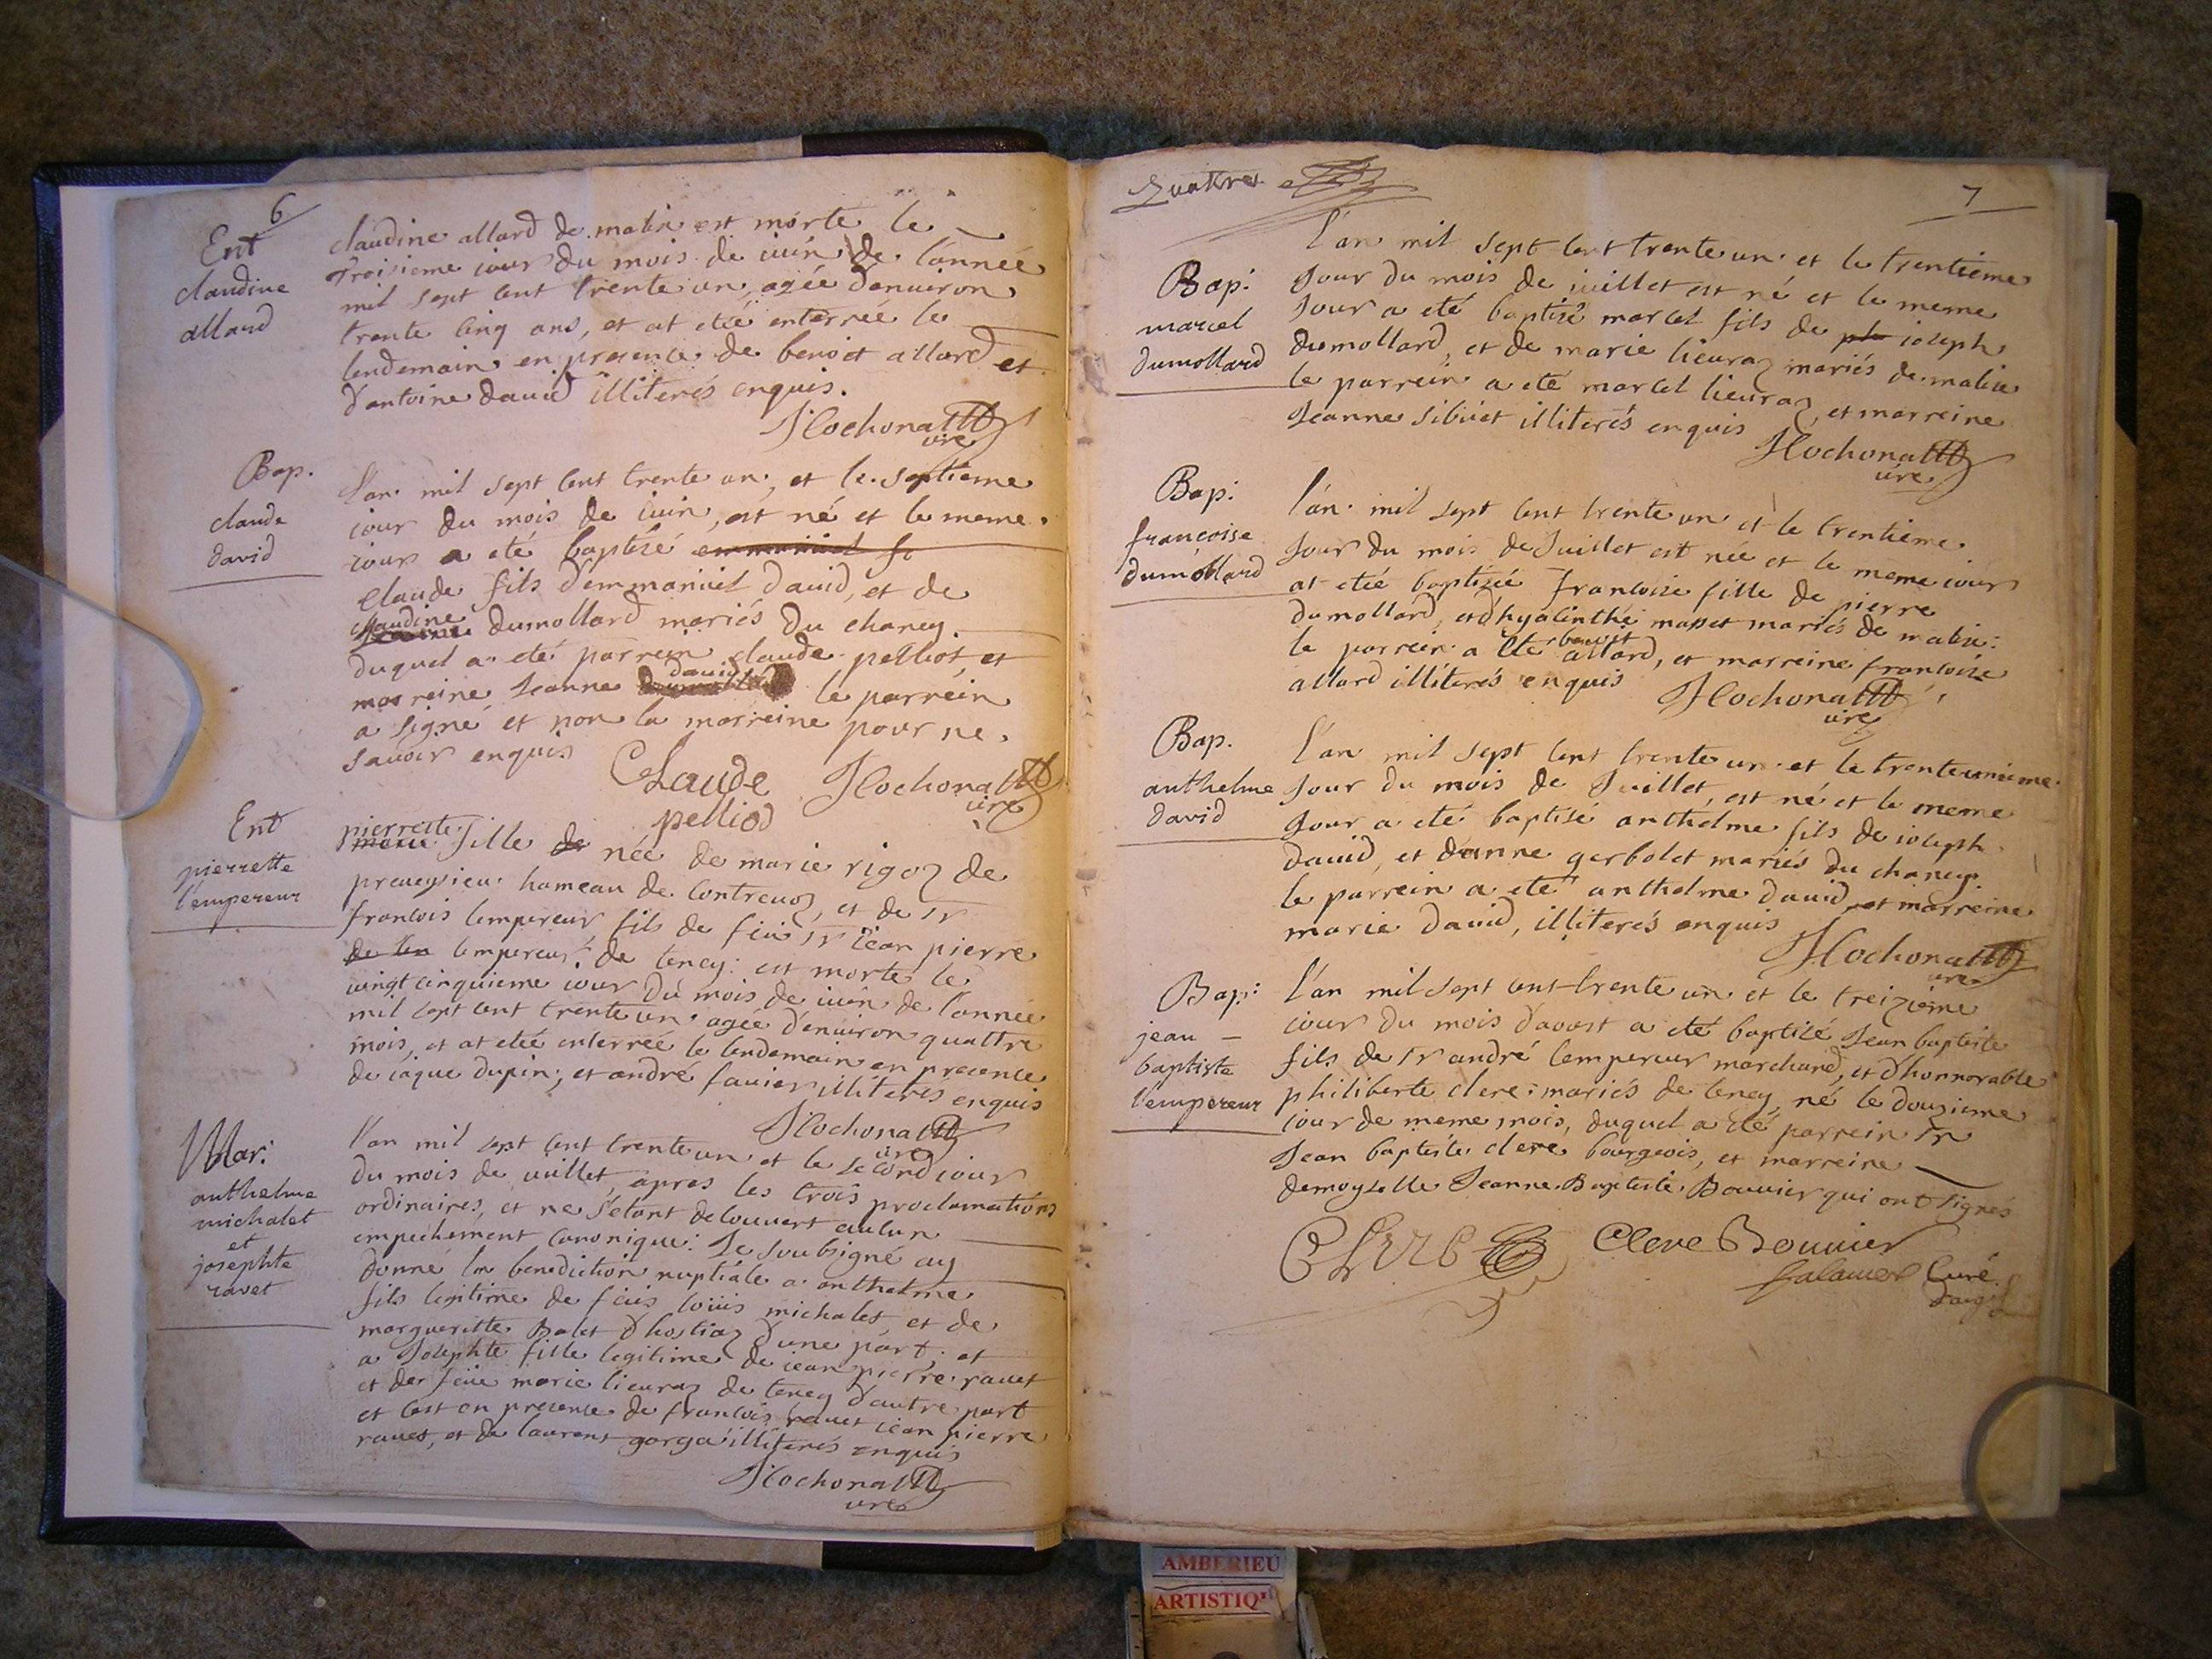 6
Ent
claudine
allard
claudine allard de malix est morte le
troisieme iour du mois de iuin de l'année
mil sept cent trente un, agée d'enuiron
trente cinq ans, et at eteé enterrée le
lendemain en presence de benoit allard et
d'antoine dauid illiterés enquis.
Cochonat
Bap.
claude
david
L'an mil sept cent trente un, et le septieme
iour du mois de iuin, est né et le meme
iour a eté baptisé emmanuel fi
claude fils d'emmanuel dauid, et de
claudine dumollard mariés du chaney
duquel a eté parrein claude pelliot, et
marreine Jeanne dauid le parrein
a signé et non la marreine pour ne
sauoir enquis
CLaude
pelliod
Cochonat
Ent
pierrette
l'empereur
pierrette
marie fille de née de marie rigoz de
preueysieu hameau de Contreuoz, et de sr
francois lempereur fils de feu sr iean pierre
lempereur de teney: est morte le
uingt cinquieme iour du mois de iuin de l'année
mil sept cent trente un agée d'enuiron quattre
mois, et at eteé enterreé le lendemain en presence
de iaque dupin, et andré fauier illiterés enquis
Cochonat
Mar:
anthelme
michalet
et
josephte
ravet
L'an mil sept cent trente un et le second iour
du mois de iuillet, apres les trois proclamations
ordinaires, et ne s'etant decouuert auCun
empechement canonique: Je soubsigné ay
donné la benediction nuptiale a anthelme
fils legitime de feu loüis michalet, et de
margueritte Balet d'hostiaz d'une part, et
a Josephte fille legitime de iean pierre rauet
et de feüe marie lieuraz de teney d'autre part
et c'est en presence de francois rauet iean pierre
rauet, et de laurent gorga illiterés enquis
Cochonat
Quatre
7
Bap:
marcel
dumollard
L'an mil sept cent trente un et le trentieme
Jour du mois de iuillet est né et le meme
Jour a eté baptisé marcel fils de ioseph
dumollard, et de marie lieuraz mariés de malix
le parrein a eté marcel lieuraz, et marreine
Jeanne sibuet illiterés enquis
Cochonat
Bap:
francoise
dumollard
L'an mil sept cent trente un et le trentieme
Jour du mois de Juillet est née et le meme iour
at eteé baptiseé francoise fille de pierre
dumollard, et d'hyacinthe masset mariés de malix:
le parrein a eté benoit allard, et marreine francoise
allard illiterés enquis
Cochonat
Bap.
anthelme
david
L'an mil sept cent trente un et le trenteunieme
Jour du mois de Juillet, est né et le meme
Jour a eté baptisé anthelme fils de ioseph
dauid, et d'anne gerbolet mariés du chaney
le parrein a eté anthelme dauid, et marreine
marie dauid, illiterés enquis
Cochonat
Bap:
jean
baptiste
l'empereur
L'an mil sept cent trente un et le treizieme
iour du mois d'aoust a eté baptisé Jean baptiste
fils de sr andré lempereur marchand, et d'honnorable
philiberte clerc: mariés de teney né le douzieme
iour de meme mois, duquel a eté parrein sr
Jean baptiste clerc bourgeois, et marreine
demoyselle Jeanne Baptiste Bouuier qui ont signés
Clerc
Bouuier
Curé
AMBERIEU
ARTISTIQU